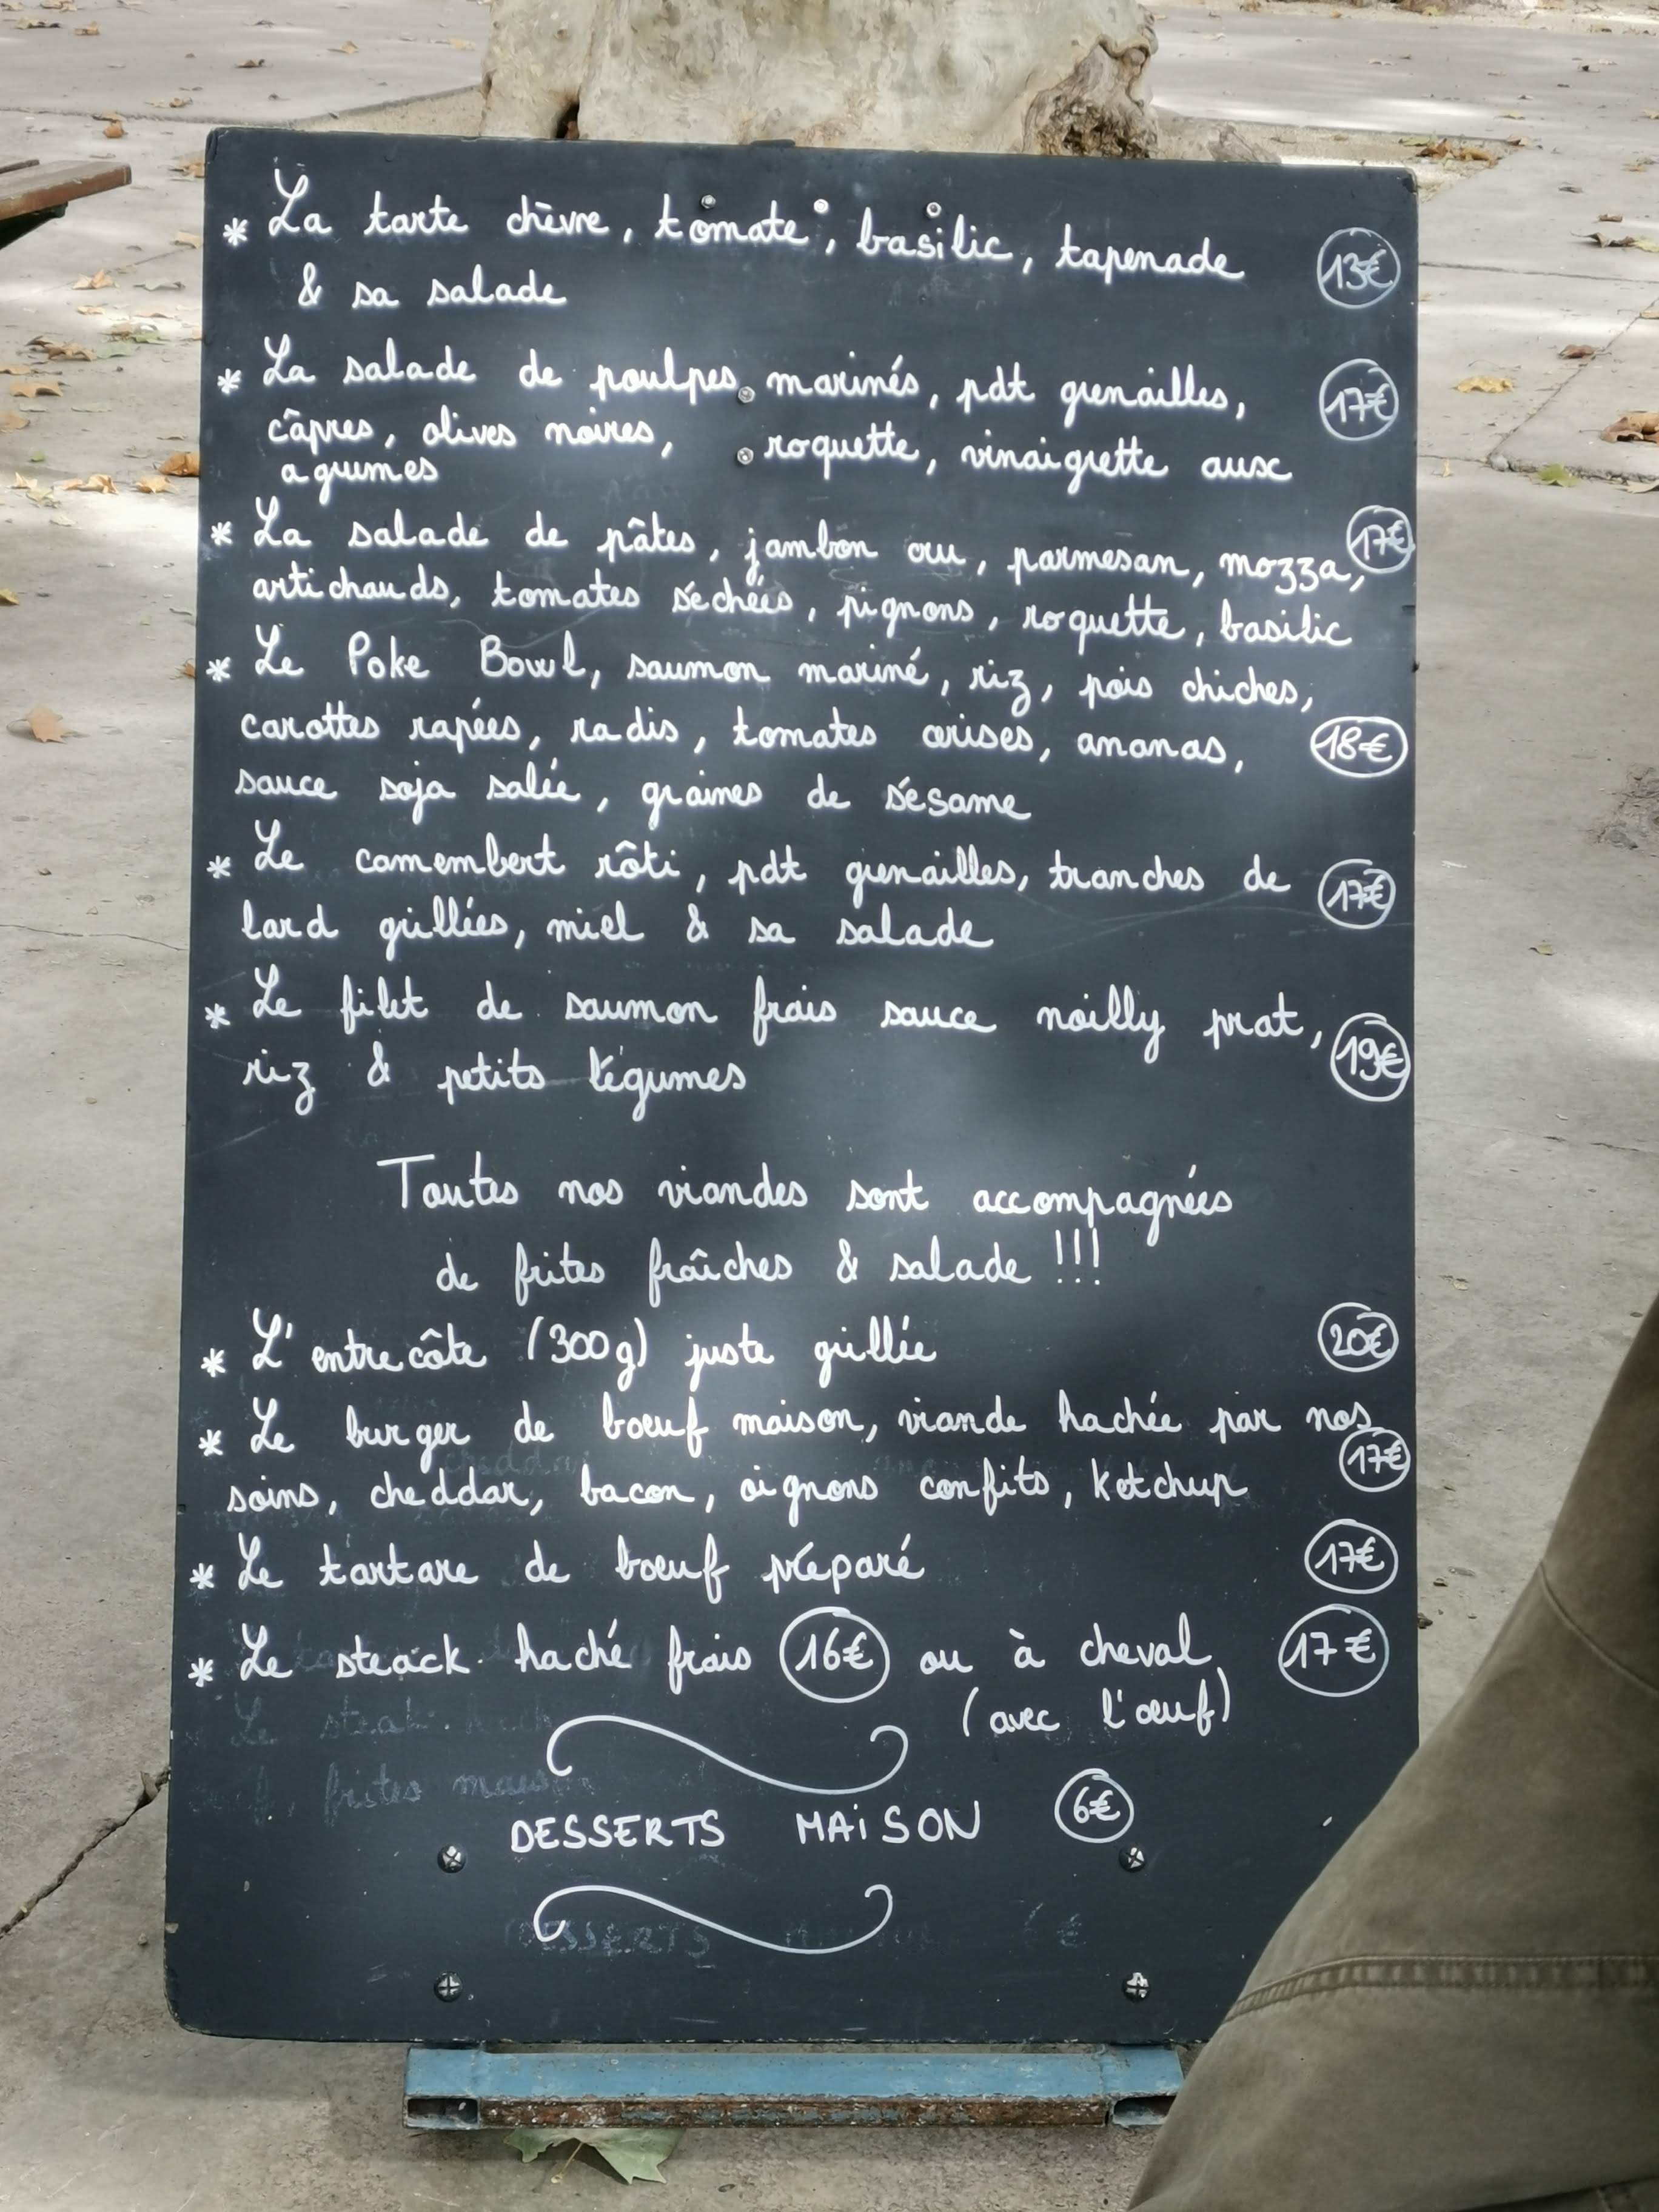 * La tarte chèvre, tomate, basilic, tapenade 13€
& sa salade
* La salade de poulpes marinés, pdt grenailles, 17€
câpres, olives noires, roquette, vinaigrette aux
agrumes
* La salade de pâtes, jambon cru, parmesan, mozza, 17€
artichauds, tomates séchées, pignons, roquette, basilic
* Le Poke Bowl, saumon mariné, riz, pois chiches,
carottes rapées, radis, tomates cerises, ananas, 18€
sauce soja salée, graines de sésame
* Le camembert rôti, pdt grenailles, tranches de 17€
lard grillées, miel & sa salade
* Le filet de saumon frais sauce noilly prat, 19€
riz & petits légumes
Toutes nos viandes sont accompagnées
de frites fraîches & salade !!!
* L'entrecôte (300g) juste grillée 20€
* Le burger de boeuf maison, viande hachée par nos 17€
soins, cheddar, bacon, oignons confits, Ketchup
* Le tartare de boeuf préparé 17€
* Le steack haché frais 16€ ou à cheval 17€
(avec l'oeuf)
DESSERTS MAiSON 6€